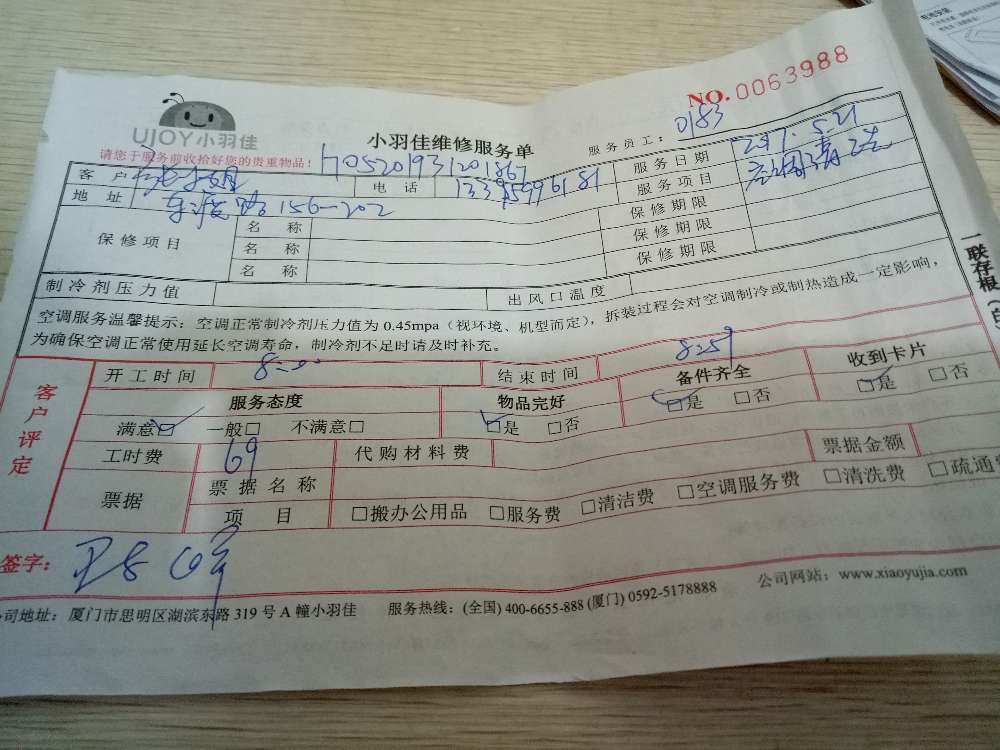 NO.0063988
UJOY小羽佳
小羽佳维修服务单
服务员工: 0183
请您于服务前收拾好您的贵重物品!
客户 电话 服务日期 2017.5.21
地址 东渡路156-202 服务项目
保修项目 名称 保修期限
名称 保修期限
名称 保修期限
制冷剂压力值 出风口温度
空调服务温馨提示:空调正常制冷剂压力值为0.45mpa(视环境、机型而定),拆装过程会对空调制冷或制热造成一定影响,
为确保空调正常使用延长空调寿命,制冷剂不足时请及时补充。
一联存根
客户评定
开工时间 8:00 结束时间 8:59
服务态度 物品完好 备件齐全 收到卡片
满意□ 一般□ 不满意□ □是 □否 □是 □否 □是 □否
工时费 69 代购材料费 票据金额
票据 票据名称
项目 □搬办公用品 □服务费 □清洁费 □空调服务费 □清洗费 □疏通
签字:
司地址:厦门市思明区湖滨东路319号A幢小羽佳 服务热线:(全国)400-6655-888(厦门)0592-5178888 公司网站:www.xiaoyujia.com